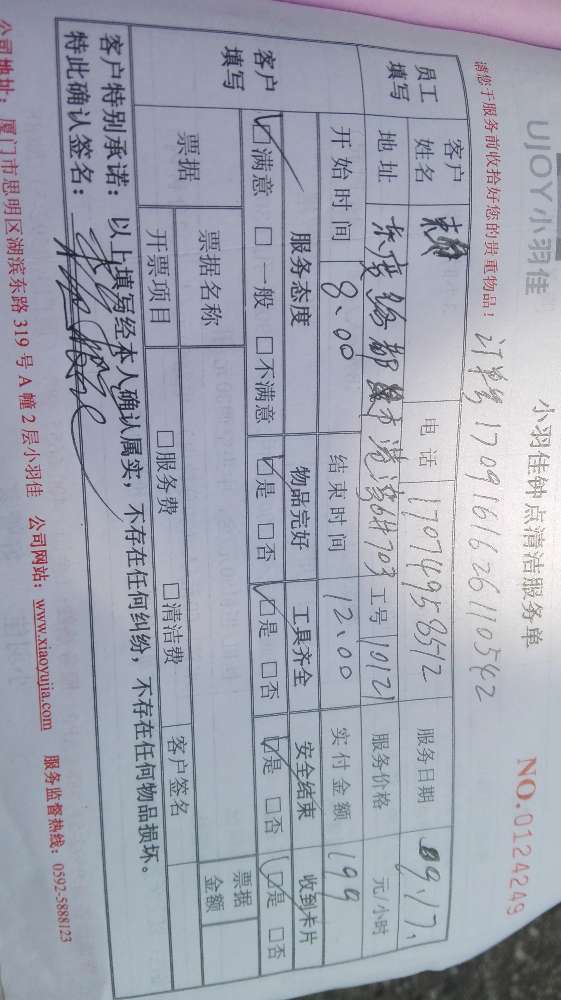 UJOY小羽佳
小羽佳钟点清洁服务单
NO.0124249
请您于服务前收拾好您的贵重物品！ 订单号 1709161626110542
员工填写 客户姓名 电话 17074958512 服务日期 09.17.
地址 工号 10121 服务价格 元/小时
开始时间 8:00 结束时间 12:00 实付金额 199
客户填写 服务态度 物品完好 工具齐全 安全结束 收到卡片
☑满意 □一般 □不满意 ☑是 □否 ☑是 □否 ☑是 □否 ☑是 □否
票据 票据名称 票据金额
开票项目 □服务费 □清洁费 客户签名
客户特别承诺：以上填写经本人确认属实，不存在任何纠纷，不存在任何物品损坏。
特此确认签名：
公司地址：厦门市思明区湖滨东路 319 号 A 幢 2 层小羽佳 公司网站：www.xiaoyujia.com 服务监督热线：0592-5888123